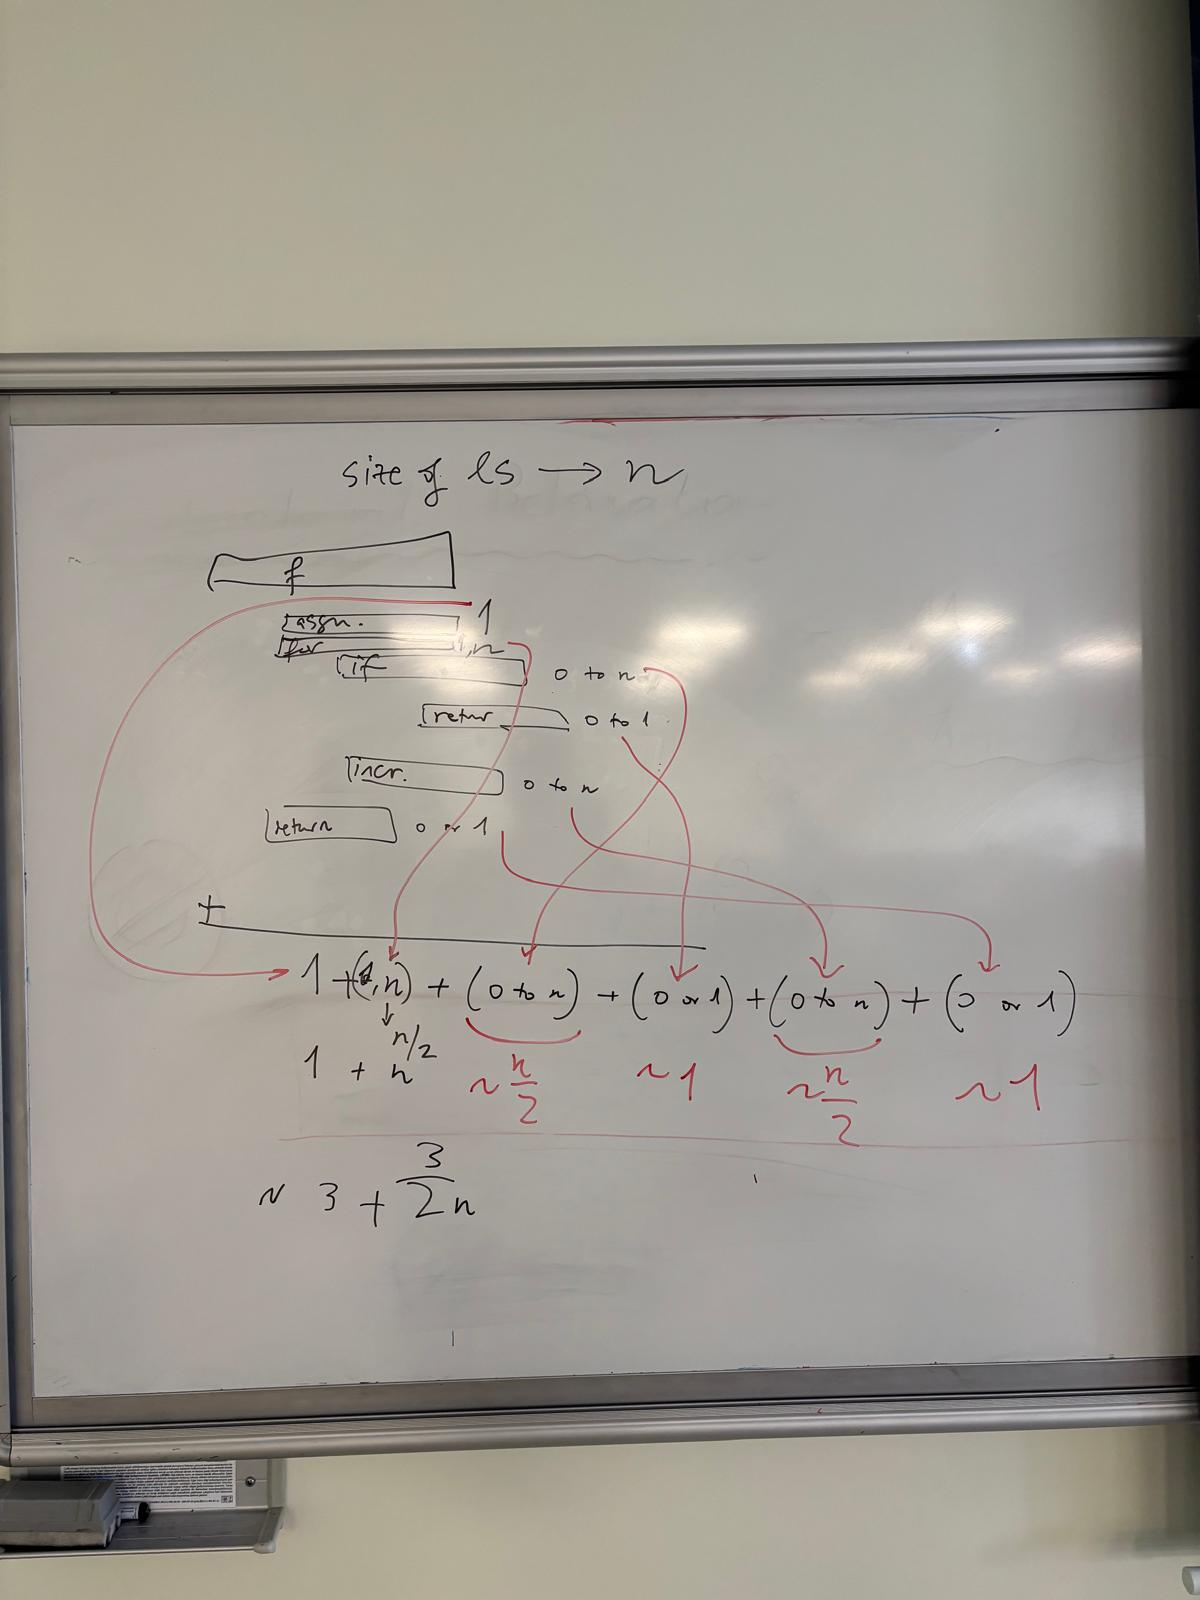 size of ls → n
f
assn. 1
for 1,n
if 0 to n
retur 0 to 1
incr. 0 to n
return 0 or 1
+
1 + (1,n) + (0 to n) + (0 or 1) + (0 to n) + (0 or 1)
↓
n/2
1 + n ~ n/2 ~ 1 ~ n/2 ~ 1
~ 3 + 3/2 n